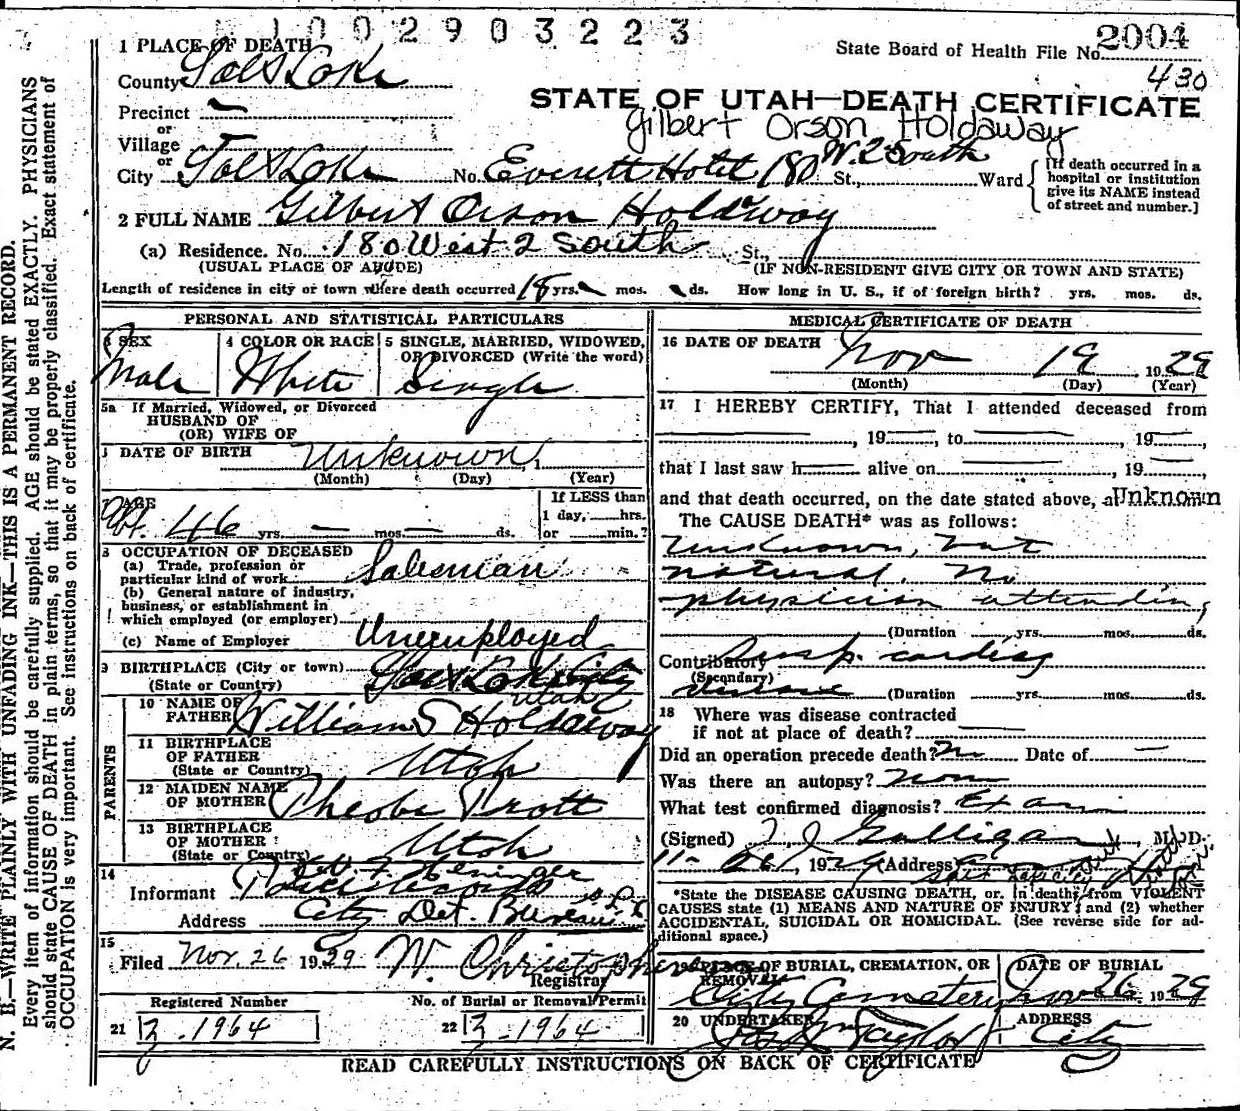 1002903223
2004
State Board of Health File No.
430
1 PLACE OF DEATH
County Salt Lake
STATE OF UTAH—DEATH CERTIFICATE
Gilbert Orson Holdaway
Precinct
or
Village
or
City Salt Lake No. Everett Hotel 180 W. 2 South St., Ward
[If death occurred in a
hospital or institution
give its NAME instead
of street and number.]
2 FULL NAME Gilbert Orson Holdaway
(a) Residence. No. 180 West 2 South St.,
(USUAL PLACE OF ABODE) (IF NON-RESIDENT GIVE CITY OR TOWN AND STATE)
Length of residence in city or town where death occurred 18 yrs. mos. ds. How long in U. S., if of foreign birth? yrs. mos. ds.
PERSONAL AND STATISTICAL PARTICULARS
3 SEX
Male
4 COLOR OR RACE
White
5 SINGLE, MARRIED, WIDOWED,
OR DIVORCED (Write the word)
Single
5a If Married, Widowed, or Divorced
HUSBAND OF
(OR) WIFE OF
DATE OF BIRTH Unknown
(Month) (Day) (Year)
AGE
Abt. 46 yrs. — mos. — ds.
If LESS than
1 day, hrs.
or min.?
8 OCCUPATION OF DECEASED
(a) Trade, profession or
particular kind of work Salesman
(b) General nature of industry,
business, or establishment in
which employed (or employer)
(c) Name of Employer Unemployed
9 BIRTHPLACE (City or town) Salt Lake City
(State or Country) Utah
PARENTS
10 NAME OF
FATHER William S Holdaway
11 BIRTHPLACE
OF FATHER
(State or Country) Utah
12 MAIDEN NAME
OF MOTHER Pheobe Pratt
13 BIRTHPLACE
OF MOTHER
(State or Country) Utah
14
Informant Police records
Address City Det. Bureau
15
Filed Nov. 26 1929 W. Christopherson
Registrar
Registered Number
21 Z. 1964
No. of Burial or Removal Permit
22 Z. 1964
MEDICAL CERTIFICATE OF DEATH
16 DATE OF DEATH Nov 19 1929
(Month) (Day) (Year)
17 I HEREBY CERTIFY, That I attended deceased from
, 19 , to , 19 ,
that I last saw h alive on , 19 ,
and that death occurred, on the date stated above, at Unknown
The CAUSE DEATH* was as follows:
Unknown, but
natural. No
physician attending
(Duration yrs. mos. ds.
Contributory Susp. cardiac
(Secondary)
disease (Duration yrs. mos. ds.
18 Where was disease contracted
if not at place of death?
Did an operation precede death? No Date of —
Was there an autopsy? None
What test confirmed diagnosis? Exam
(Signed) T J Galligan, M. D.
11-26, 1929 (Address)
*State the DISEASE CAUSING DEATH, or, in deaths from VIOLENT
CAUSES state (1) MEANS AND NATURE OF INJURY; and (2) whether
ACCIDENTAL, SUICIDAL OR HOMICIDAL. (See reverse side for ad-
ditional space.)
19 PLACE OF BURIAL, CREMATION, OR
REMOVAL
City Cemetery
DATE OF BURIAL
Nov 26 1929
20 UNDERTAKER
Taylor
ADDRESS
City
READ CAREFULLY INSTRUCTIONS ON BACK OF CERTIFICATE
N. B.—WRITE PLAINLY WITH UNFADING INK—THIS IS A PERMANENT RECORD.
Every item of information should be carefully supplied. AGE should be stated EXACTLY. PHYSICIANS
should state CAUSE OF DEATH in plain terms, so that it may be properly classified. Exact statement of
OCCUPATION is very important. See instructions on back of certificate.